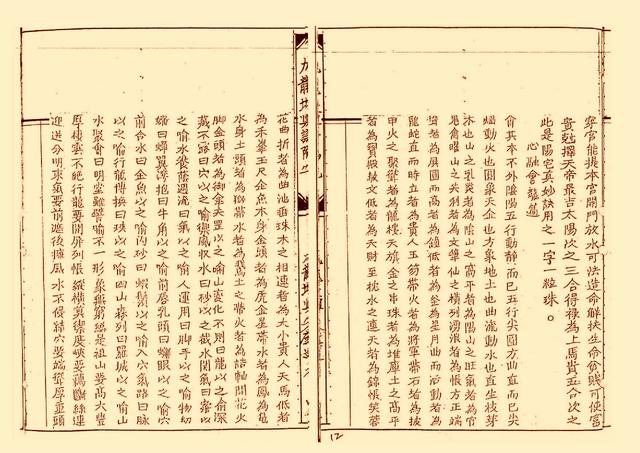 穿官能提本宮開門放水可法造命解扶生命貧賤可使富
貴尅擇天帝最吉太陽次之三合得禄為上馬貴五合次之
此是陽宅真妙訣用之一字一粒珠。
心融會龍通
俞其本不外陰陽五行動静而已五行尖圓方曲直而已尖
燄動火也圓象天金也方象地土也曲流動水也直生枝芽
木也山之乳突者為陰山之窩平者為陽山之旺氣者為官
鬼禽曜山之尖利者為文筆仙之横列湧浪者為帳方正端
者為屏圓而高者為鐘低者為釜為星月曲而活動者為
龍蛇直而時立者為貴人玉笏将軍帶石者為
甲火之聚聳者為龍樓天旗金之串珠者為堆庫土之高平
者為低者為天財至枕水之連天者為錦帳芙蓉
花曲折者為曲池垂珠木之相連者為大小貴人天馬低者
為禾拳玉尺金魚木身金頭者為虎金星帶水者為鳳為龜
水身土頭者為獅帶水者為萬土之帶火者為誥軸開花火
脚金頭者為御傘夫罡以之喻山变化不測曰龍以之喻深
藏不露曰穴以之喻禦風収水曰砂以之截水関氣曰案以
之喻水濙蔭週流曰氣以之喻人運用曰脚手以之喻物切
嫩曰蟬翼浮抱曰牛角以之喻前唇乳頭曰蠏眼以之喻穴
前合水曰金魚以之喻内砂曰蝦鬚以之喻入穴氣路曰脉
以之喻行龍博換曰珠以之喻四山森列曰羅城以之喻山
水聚會曰明堂雖譬喻不一形象無窮總是祖山要高大豐
厚樓雲不絶行龍要開屏列帳縱横莫禦度峽要藕斷絲連
迎送分明束氣要前遮後擁風水不侵結穴要端聳厚重頭
12